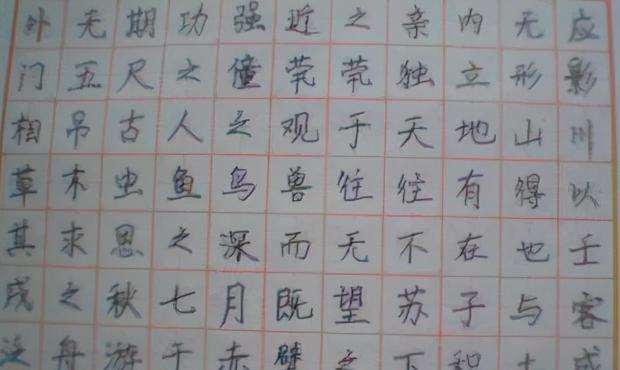 外无期功强近之亲内无应
门五尺之僮茕茕独立形影
相吊古人之观于天地山川
草木虫鱼鸟兽往往有得以
其求思之深而无不在也壬
戌之秋七月既望苏子与客
泛舟游于赤壁之下